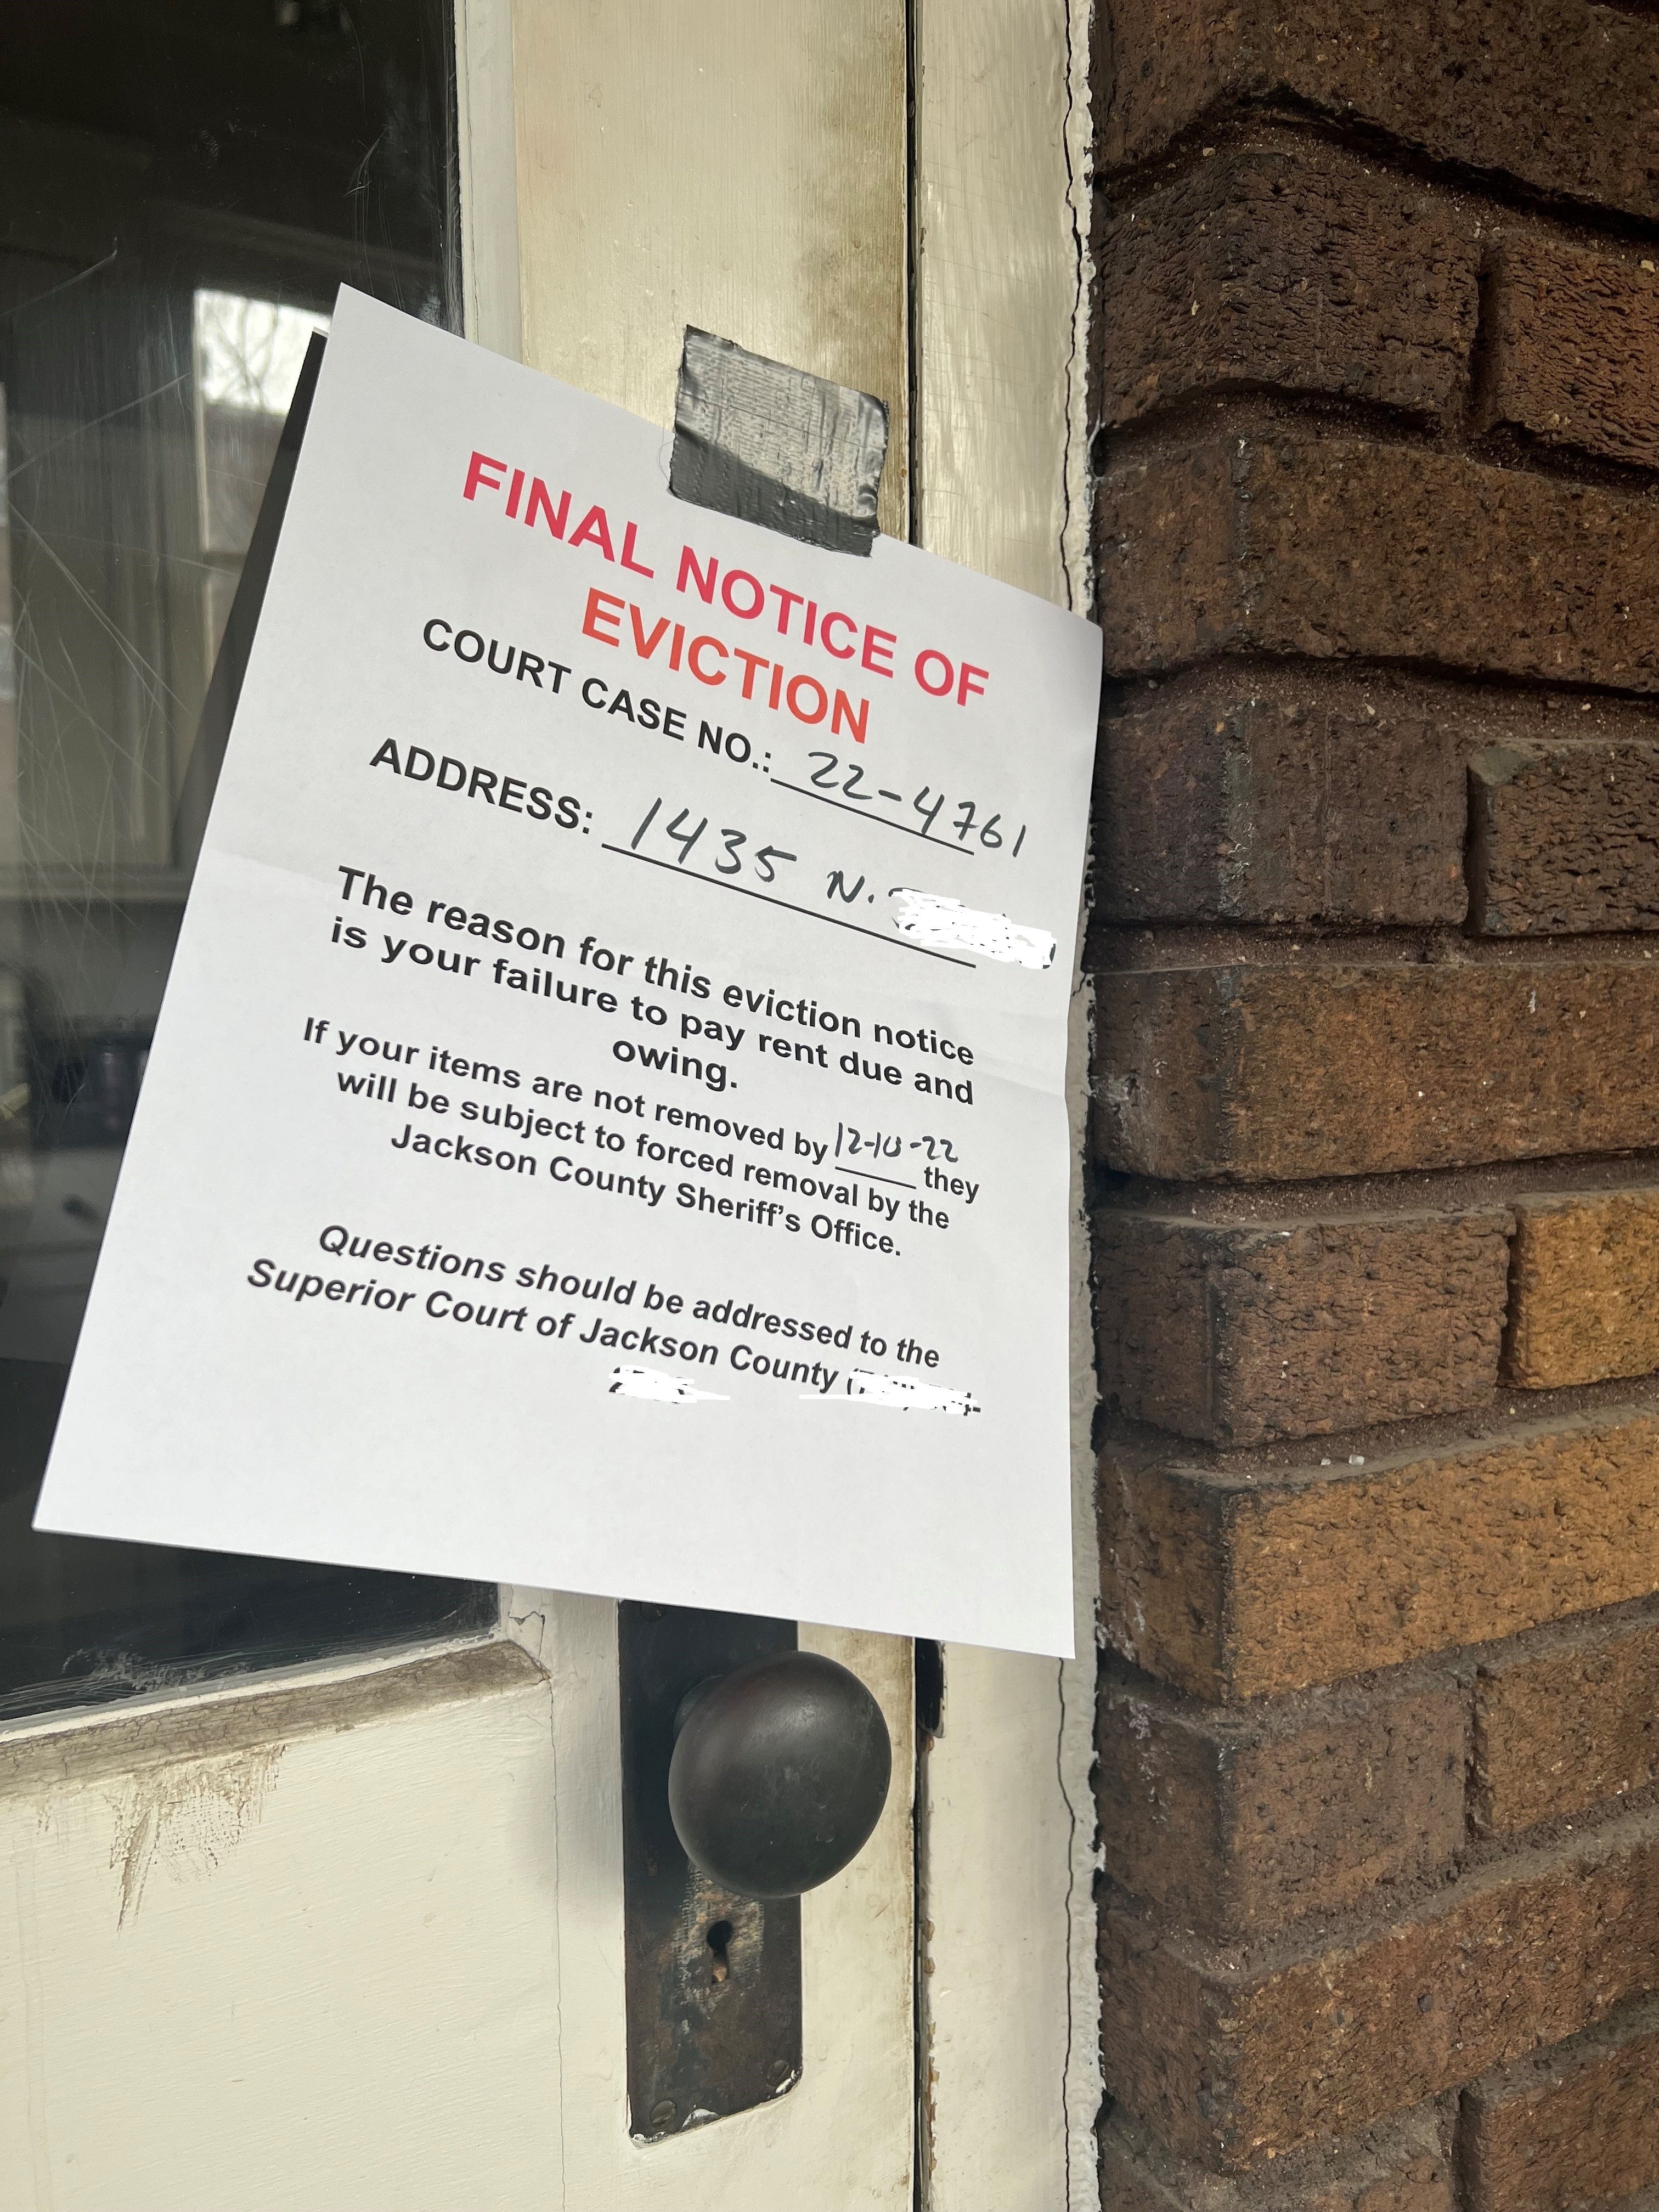 FINAL NOTICE OF
EVICTION
COURT CASE NO.: 22-4761
ADDRESS: 1435 N.
The reason for this eviction notice
is your failure to pay rent due and
owing.
If your items are not removed by 12-10-22 they
will be subject to forced removal by the
Jackson County Sheriff's Office.
Questions should be addressed to the
Superior Court of Jackson County